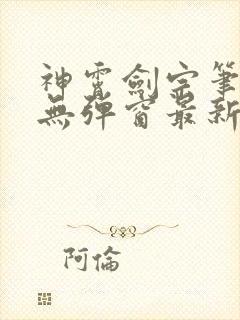 神霄劍宗筆
無彈窗最新
阿倫